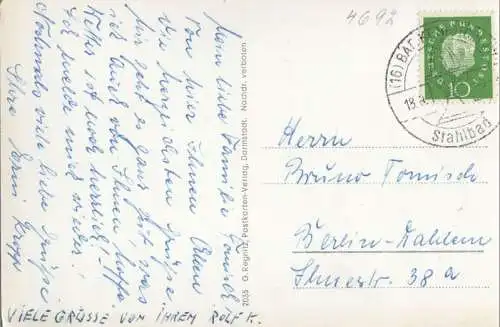 4692
Meine liebe Familie Tomisch!
Von hier Ihnen Allen
die herzlichsten Grüße.
Mir geht es ganz gut, was
ich auch von Ihnen hoffe.
Wetter ist noch herrlich!
Ich melde mich wieder!
Nochmals viele liebe Grüße
Ihre Erni Kropp
VIELE GRÜSSE VON IHREM ROLF K.
2035 O. Riegnitz, Postkarten-Verlag, Darmstadt. Nachdr. verboten
DEUTSCHE BUNDESPOST
10
(16) BAD
18.
Stahlbad
Herrn
Bruno Tomisch
Berlin-Dahlem
Ihnestr. 38a